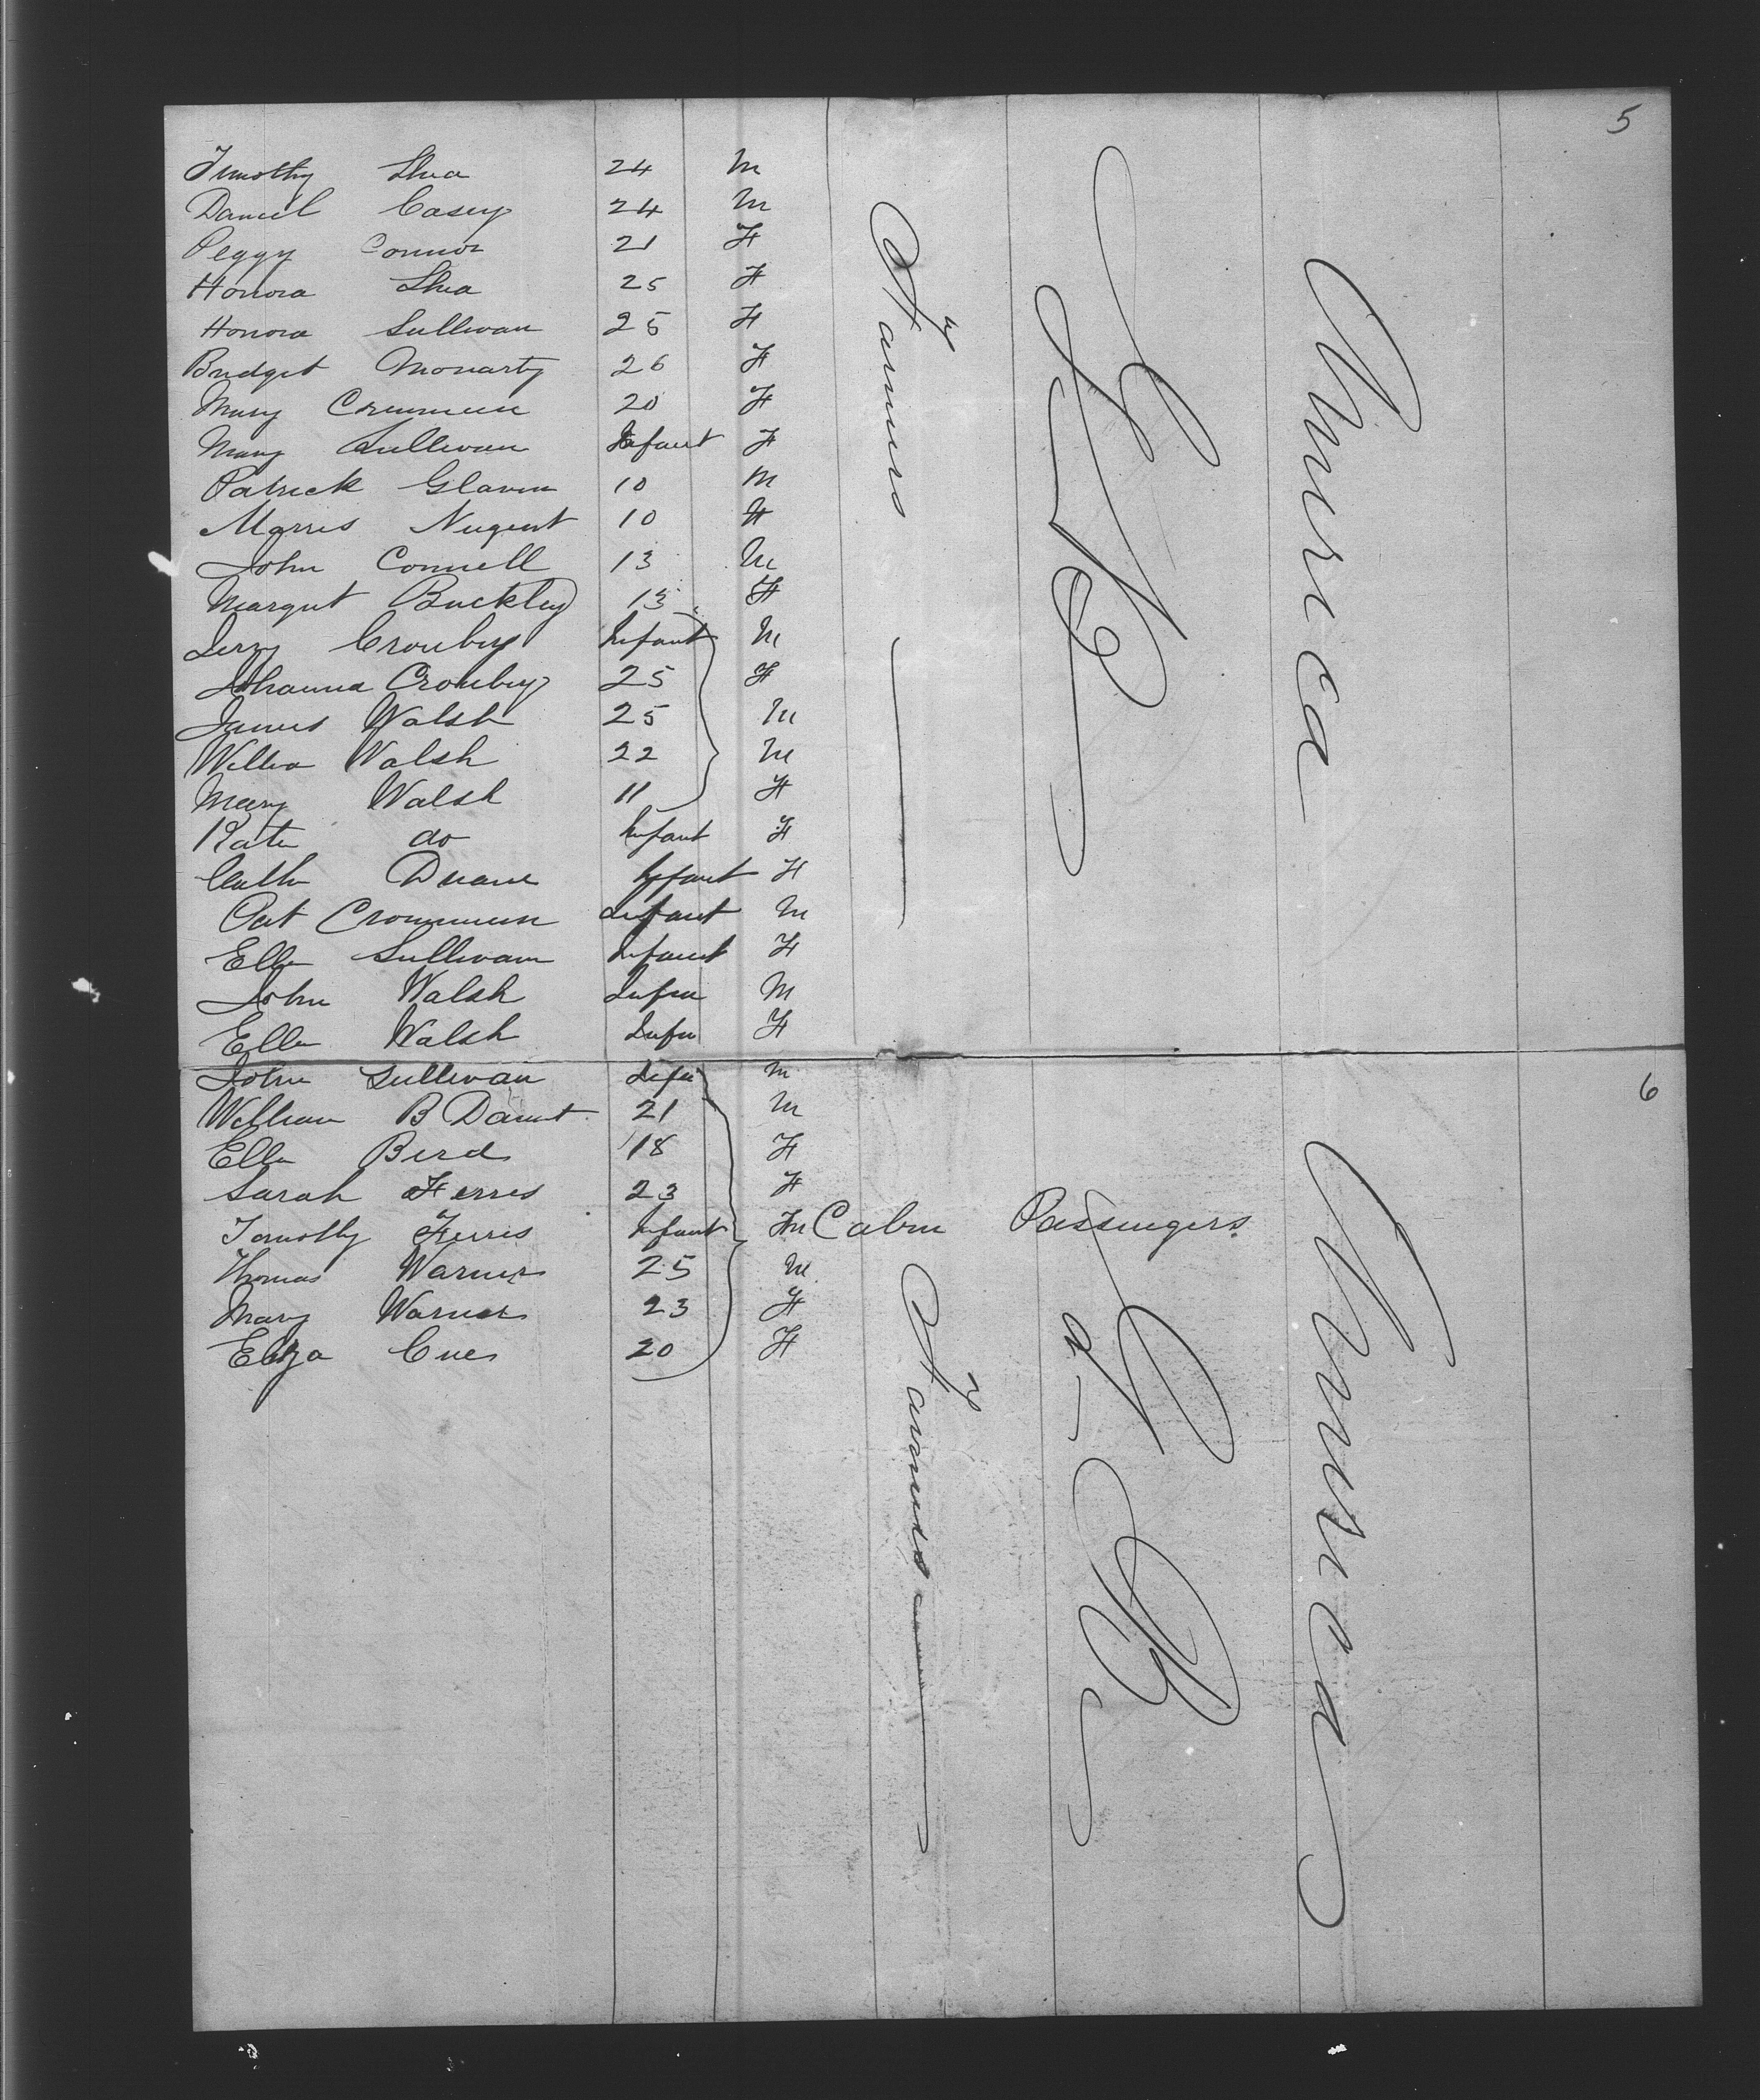 5
Timothy Shea 24 M
Daniel Casey 24 M
Peggy Connor 21 F
Honora Shea 25 F
Honora Sullivan 25 F
Bridget Moriarty 26 F
Mary Cremmen 20 F
Mary Sullivan Infant F
Patrick Glavin 10 M
Morris Nugent 10
John Connell 13 M
Margret Buckley 13 F
Jerry Crowley Infant M
Johanna Crowley 25 F
James Walsh 25 M
Willia Walsh 22 M
Mary Walsh 11 F
Kate do Infant F
Cath Duane Infant F
Pat Crommen Infant M
Ellen Sullivan Infant F
John Walsh Infan M
Ellen Walsh Infn F
John Sullivan Infn M
6
William B Daunt 21 M
Ellen Bird 18 F
Sarah Ferris 23 F
Timothy Ferris Infant M Cabin Passengers
Thomas Warner 25 M
Mary Warner 23 F
Eliza 20 F
Farmers
America
Farmers
America